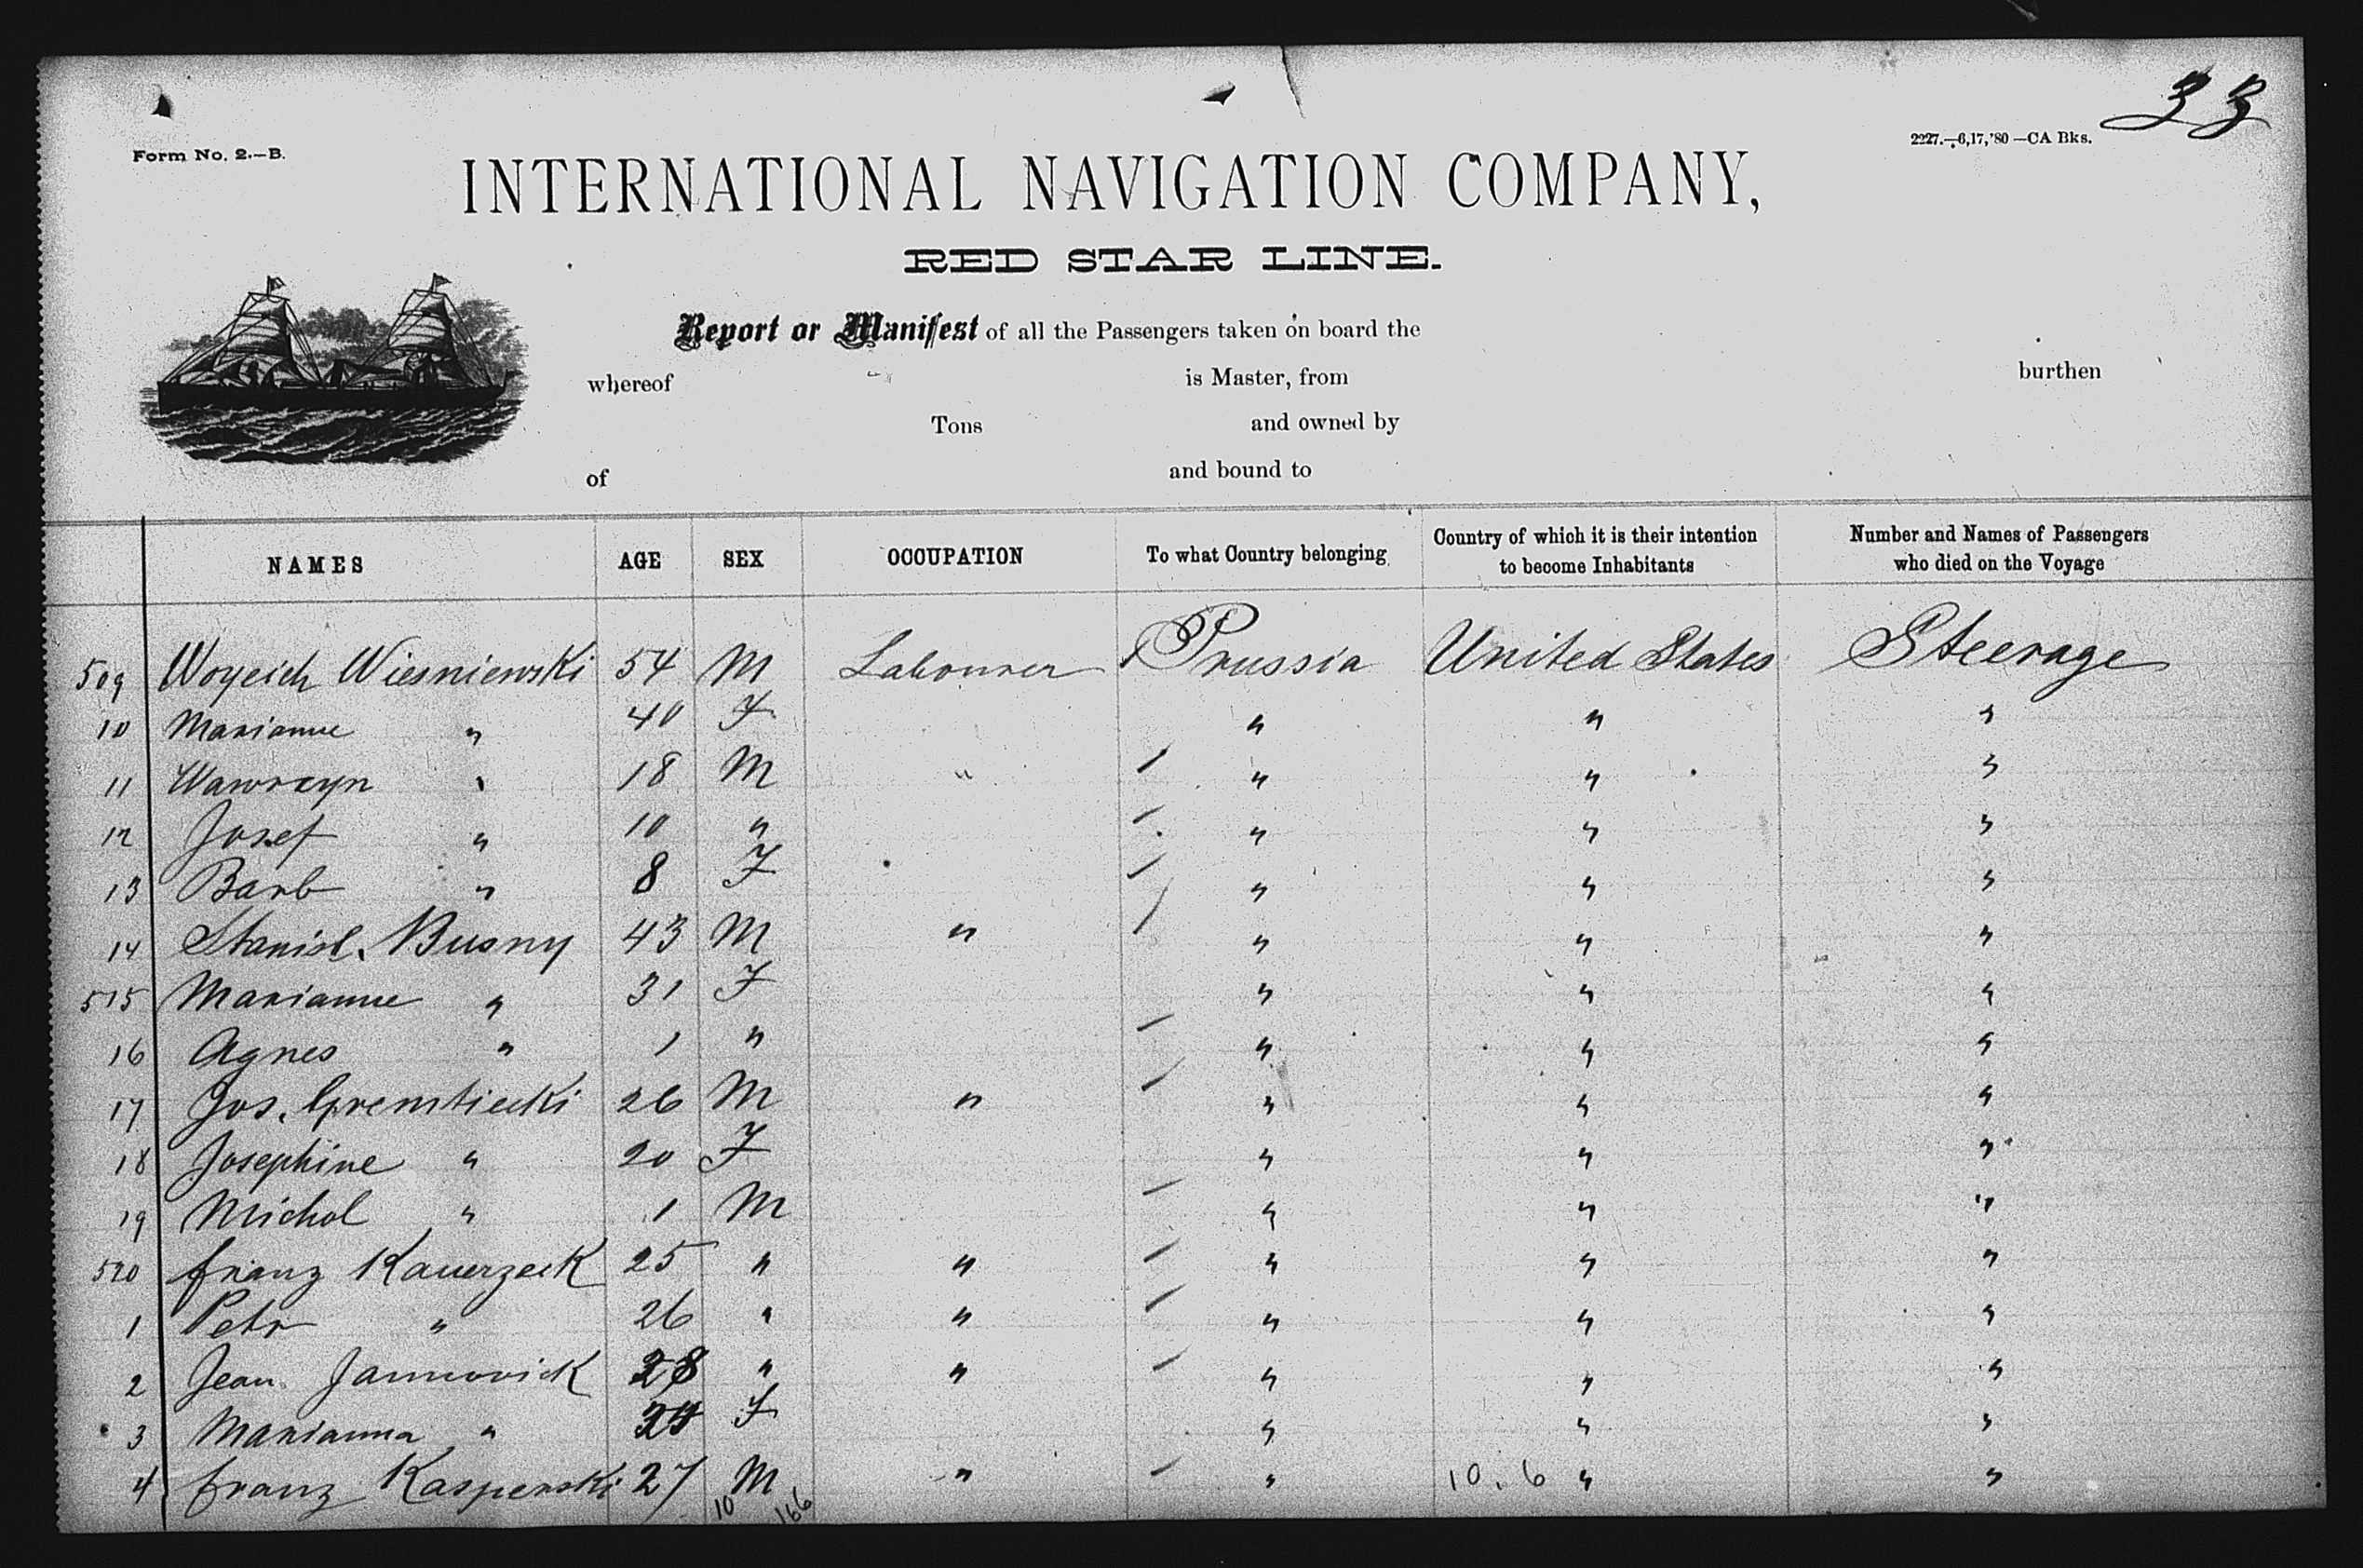 33
Form No. 2.—B.
2227.—6,17,'80—CA Bks.
INTERNATIONAL NAVIGATION COMPANY,
RED STAR LINE.
Report or Manifest of all the Passengers taken on board the
whereof is Master, from burthen
Tons and owned by
of and bound to
NAMES AGE SEX OCCUPATION To what Country belonging Country of which it is their intention to become Inhabitants Number and Names of Passengers who died on the Voyage
509 Woyeich Wiesniewski 54 M Labourer Prussia United States Steerage
10 Marianne " 40 F " " "
11 Wawrzyn " 18 M " " " "
12 Josef " 10 " " " "
13 Barb " 8 F " " "
14 Stanisl. Busny 43 M " " " "
515 Marianne " 31 F " " "
16 Agnes " 1 " " " "
17 Jos. 26 M " " " "
18 Josephine " 20 F " " "
19 Michol " 1 M " " "
520 franz Kauerzeck 25 " " " " "
1 Petr " 26 " " " " "
2 Jean 28 " " " " "
3 Marianna " F " " "
4 franz Kasperski 27 M " " " "
10 166 10.6